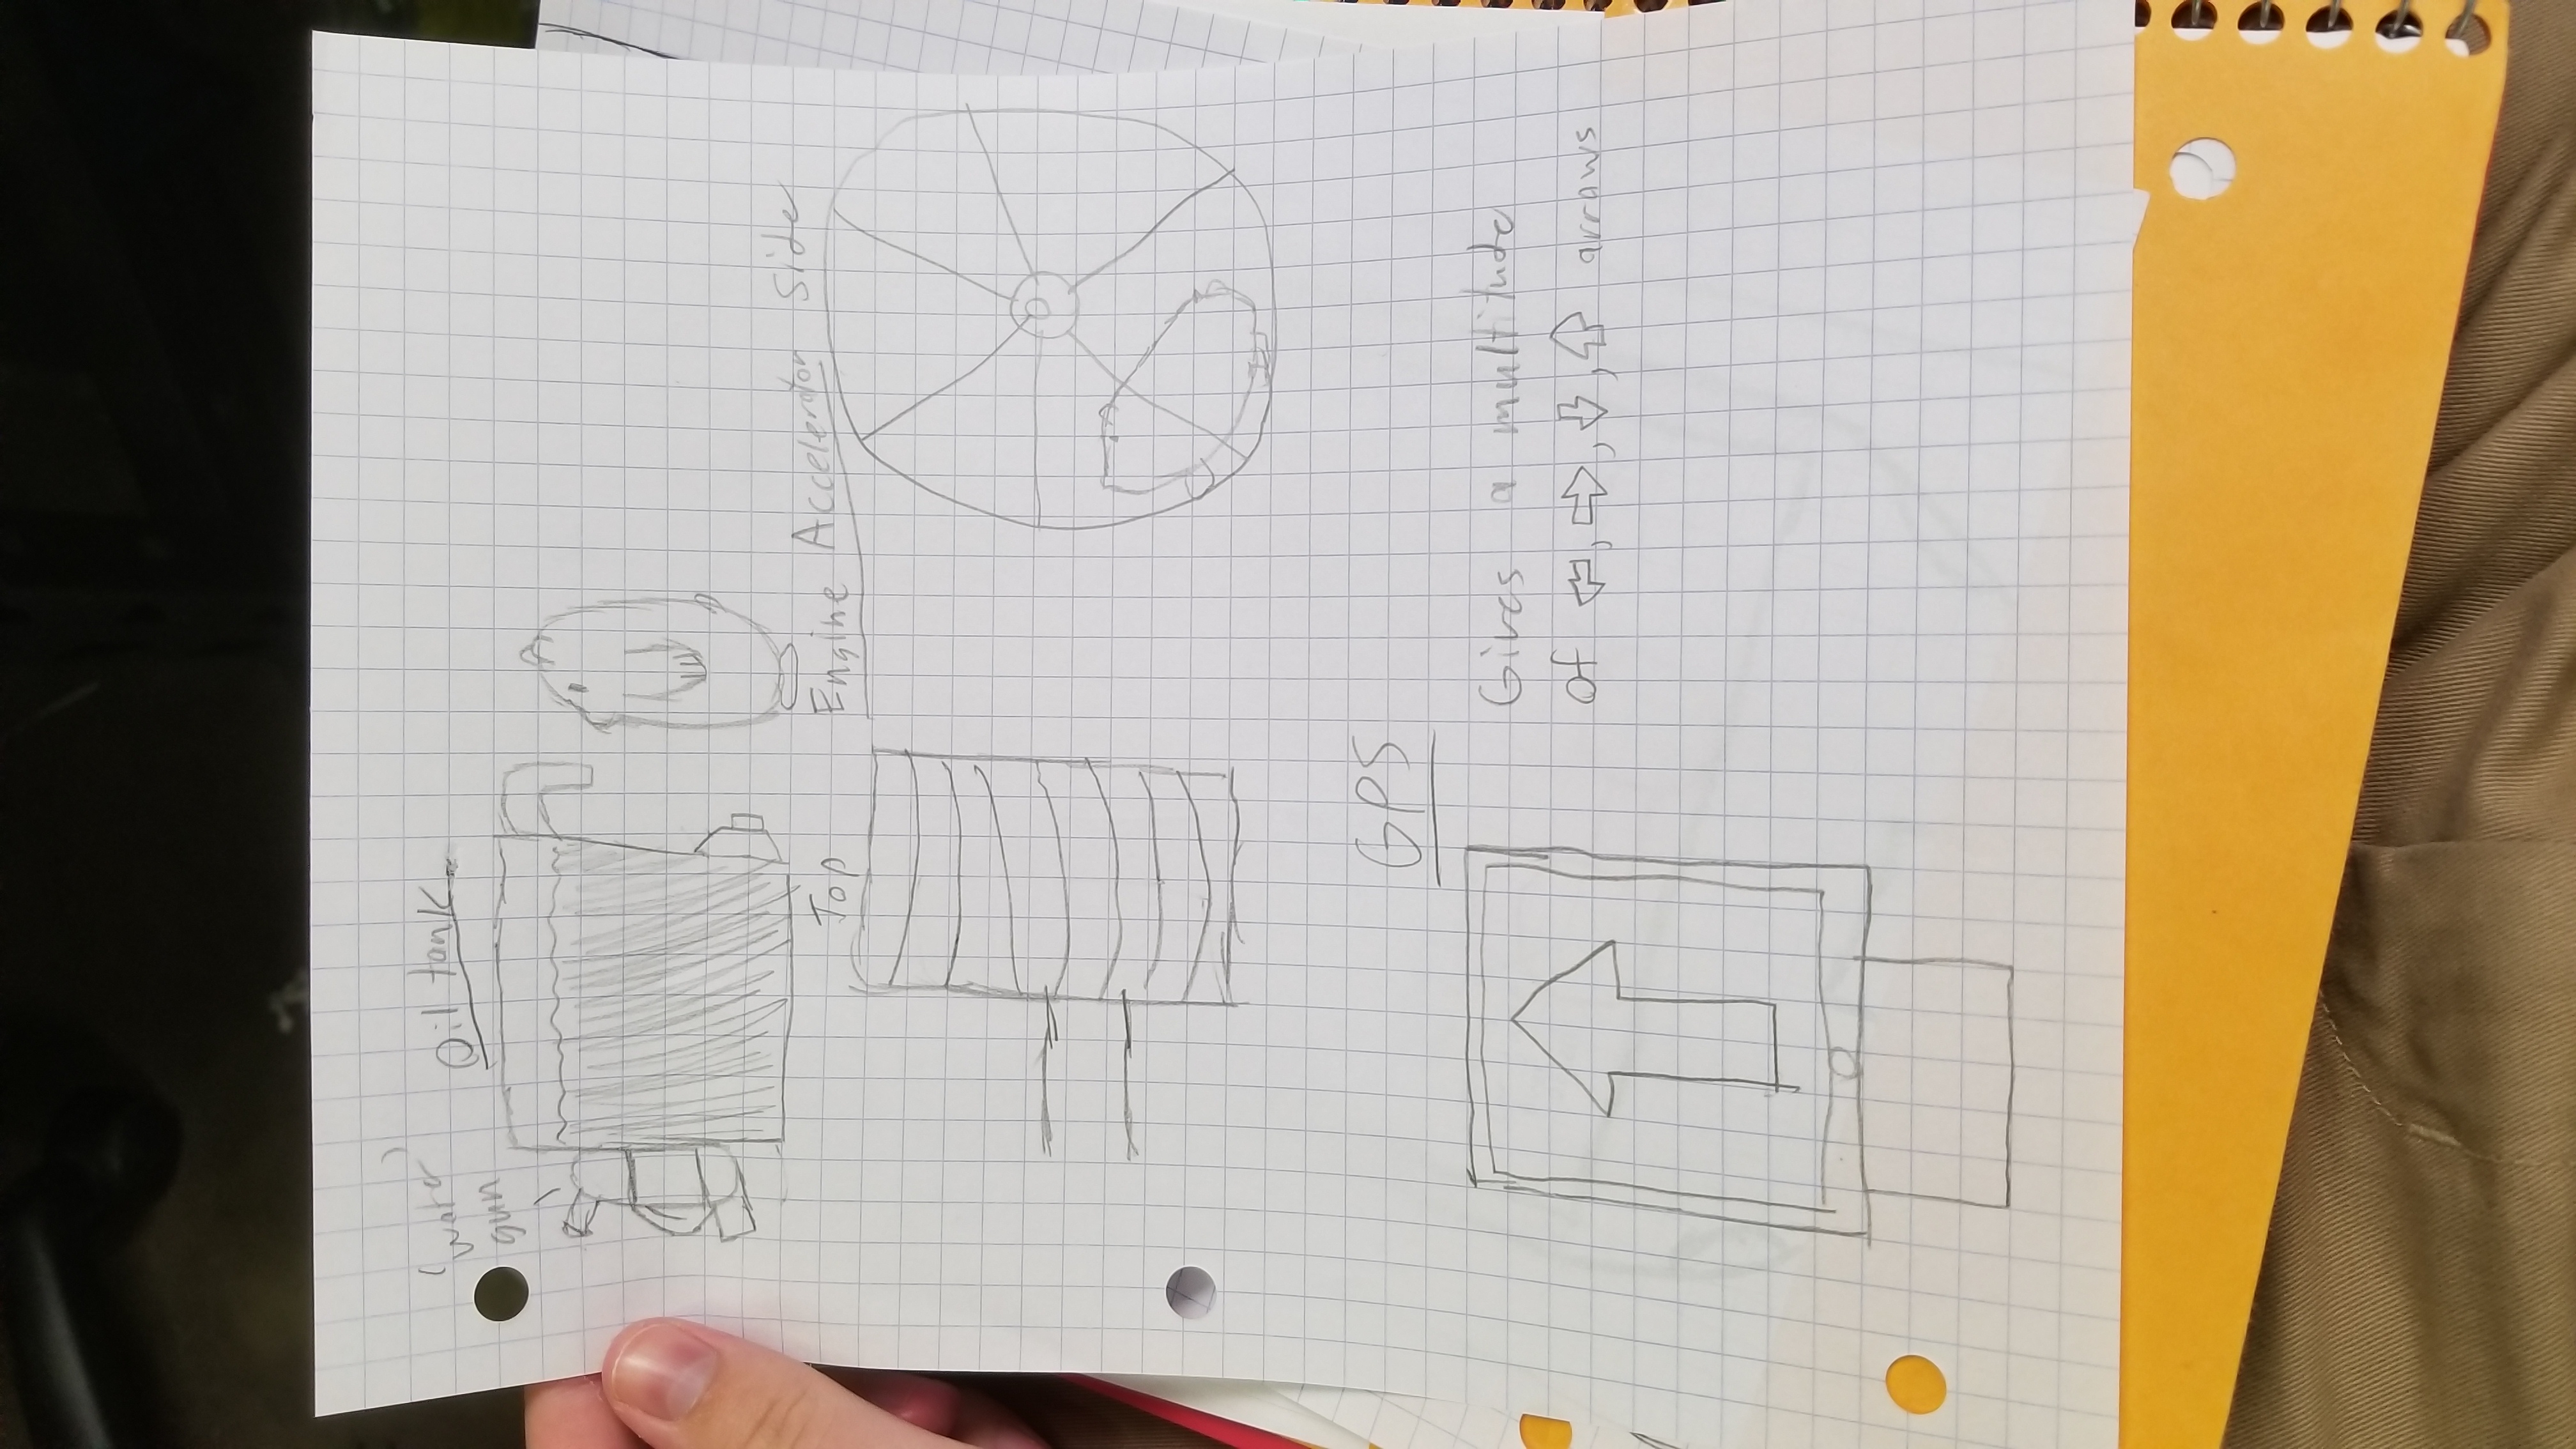 "water"
gun
Oil tank
Top
Engine Accelerator Side
GPS
Gives a multitude
of ⇦, ⇨, ⇩, ⇧ arrows